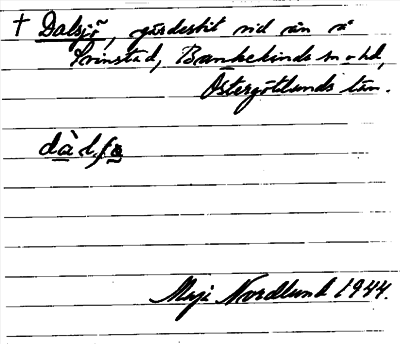 † Dalsjö, gärdestit vid ån å
Grinstad, Bankekinds sn o hd,
Östergötlands län.
dàlʃø
Maja Nordlund 1944.